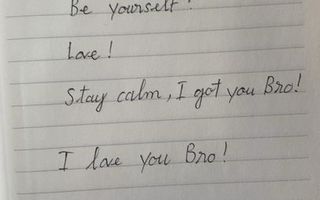 Be yourself!
Love!
Stay calm, I got you Bro!
I love you Bro!